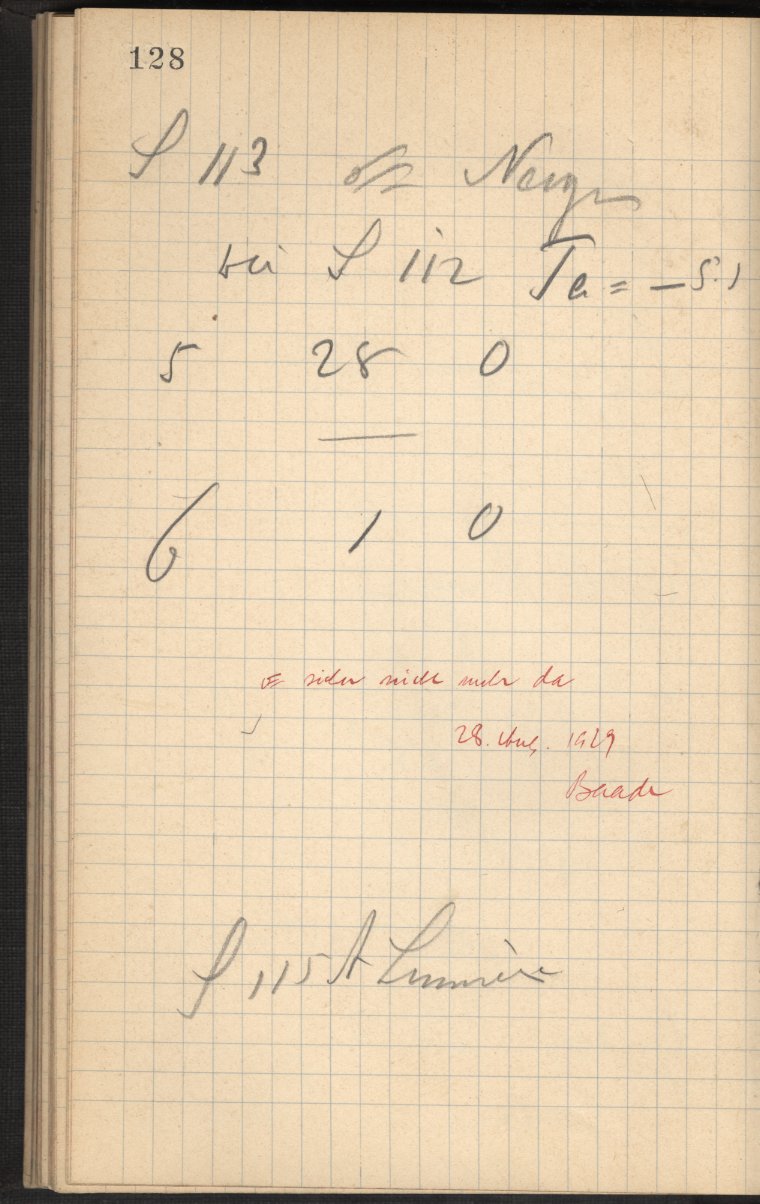 128
S 113
bei S 112 Ta = – 5.1
5 28 0
6 1 0
nicht mehr da
28. Aug. 1929
Baade
S 115 A Lumière